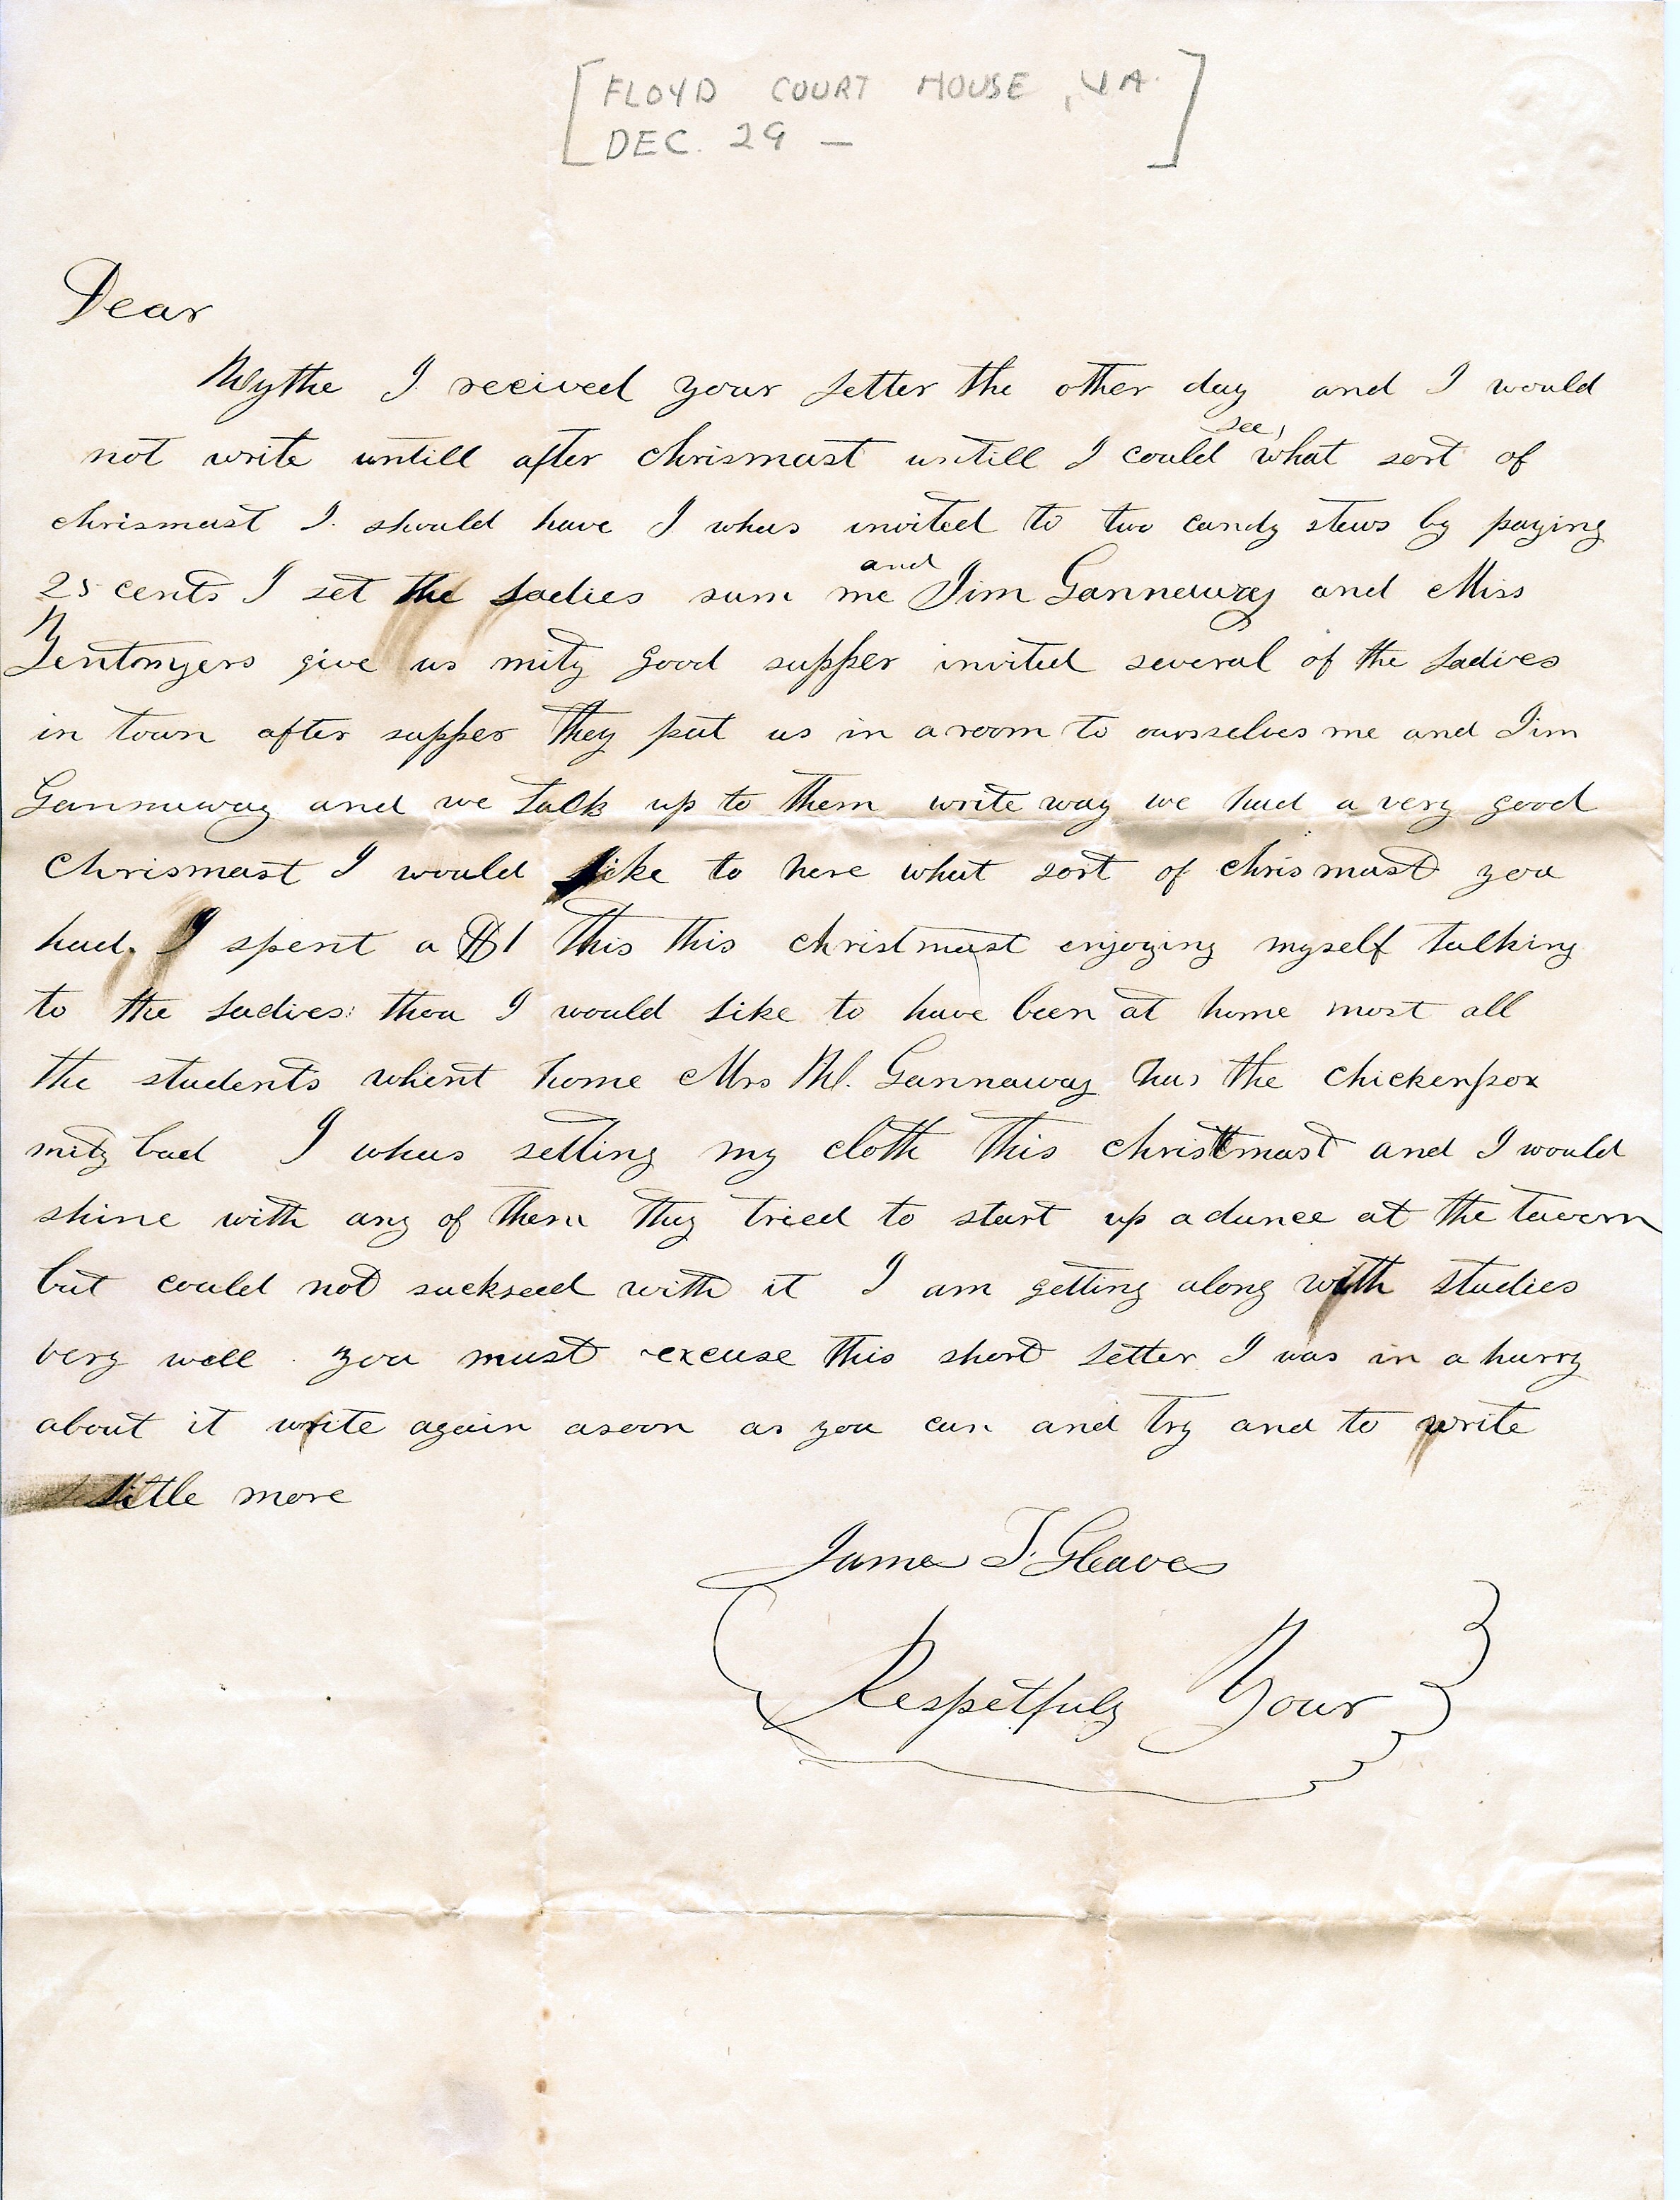 [FLOYD COURT HOUSE, VA.
DEC. 29 — ]
Dear
Wythe I recived your letter the other day and I would
see,
not write untill after chrismast untill I could what sort of
chrismast I should have I whas invited to two candy stews by paying
25 cents I set the ladies sum me Jim Gannaway and Miss
and
give us mity good supper invited several of the ladies
in town after supper they put us in a room to oursselves me and Jim
Gannaway and we talk up to them write way we had a very good
Chrismast I would like to here what sort of chrismast you
had. I spent a $1 this this christmast enjoying myself talking
to the ladies: thou I would like to have been at home most all
the students whent home Mrs M. Gannaway has the chickenpox
mity bad I whas setting my cloth this christmast and I would
shine with any of them they tried to start up a dance at the tavern
but could not suckseed with it I am getting along with studies
very well. you must excuse this short letter I was in a hurry
about it write again asoon as you can and try and to write
little more
James T. Gleaves
Respetfuly Your